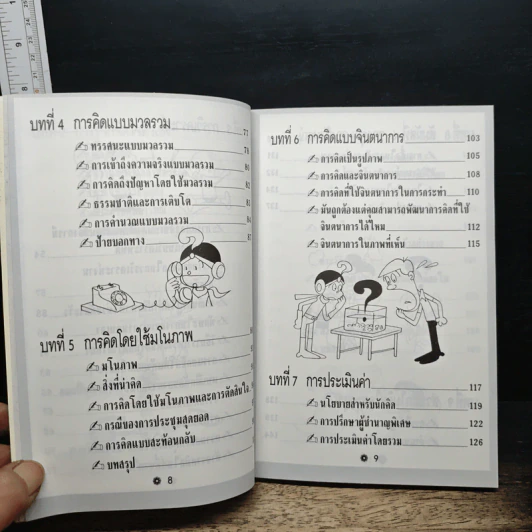 บทที่ 4 การคิดแบบมวลรวม 77
ทรรศนะแบบมวลรวม 78
การเข้าถึงความจริงแบบมวลรวม 80
การคิดถึงปัญหาโดยใช้มวลรวม 82
ธรรมชาติและการเติบโต
การคำนวณแบบมวลรวม
ป้ายบอกทาง
บทที่ 5 การคิดโดยใช้มโนภาพ
มโนภาพ
สิ่งที่น่าคิด
การคิดโดยใช้มโนภาพและการตัดสินใจ
กรณีของการประชุมสุดยอด
การคิดแบบสะท้อนกลับ
บทสรุป
8
บทที่ 6 การคิดแบบจินตนาการ 103
การคิดเป็นรูปภาพ 105
การคิดและจินตนาการ 108
การคิดที่ใช้จินตนาการในการกระทำ 110
มันถูกต้องแต่คุณสามารถพัฒนาการคิดที่ใช้
จินตนาการได้ไหม 112
จินตนาการในภาพที่เห็น 115
?
บทที่ 7 การประเมินค่า 117
นโยบายสำหรับนักคิด 119
การปรึกษาผู้ชำนาญพิเศษ 122
การประเมินค่าโดยรวม 126
9